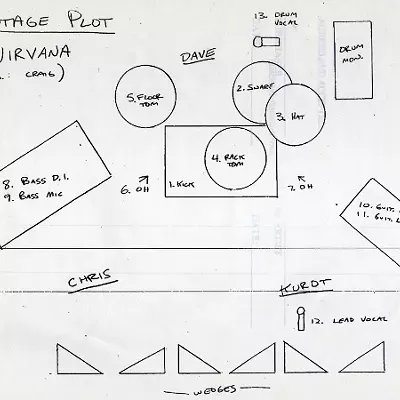 STAGE PLOT
NIRVANA
: CRAIG)
DAVE
13. DRUM
VOCAL
DRUM
MON.
5. FLOOR
TOM
2. SNARE
3. HAT
4. RACK
TOM
1. KICK
6. OH
7. OH
8. BASS D.I.
9. BASS MIC
10. GUIT.
11. GUIT. L
CHRIS
KURDT
12. LEAD VOCAL
WEDGES